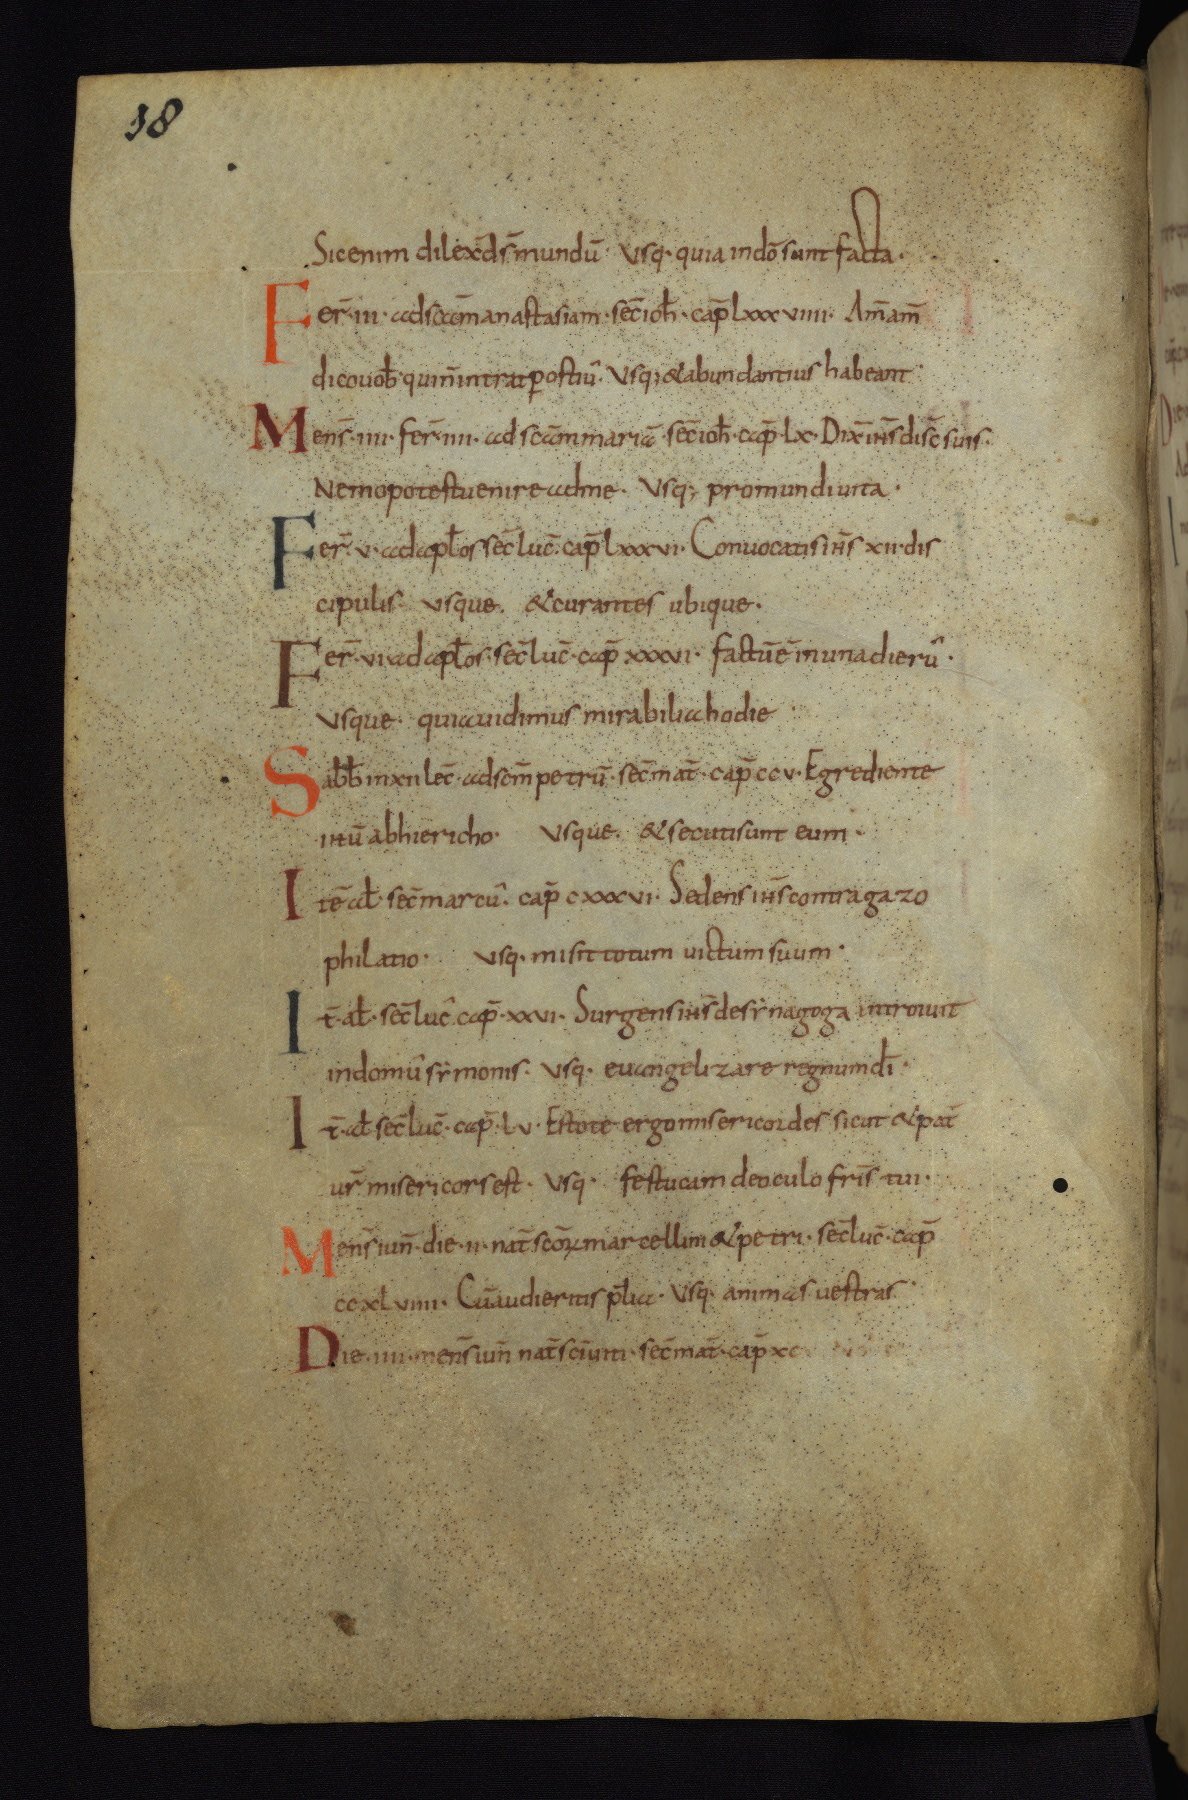 38
Sicenim dilex d̄s mundū· Vsq· quia in dō sunt facta·
Fer̄· iii· ad scām anastasiam· sec̄ ioh̄· cap̄ lxxxviiii· Am̄ am̄
dico uob̄· qui n̄ intrat p ostiū· Vsq; & abundantius habeant·
Mens̄· iiii· fer̄ iiii· ad scām mariā· sec̄ ioh̄· cap̄· lx· Dix̄ ih̄s disc̄ suis·
Nemo potest uenire ad me· Vsq; pro mundi uita·
Fer̄· v· ad apl̄os sec̄ luc̄· cap̄ lxxxvi· Conuocatis ih̄s xii· dis
cipulis· usque· & curantes ubique·
Fer̄· vi· ad apl̄os· sec̄ luc̄· cap̄ xxxvi· factū ē in una dierū·
Vsque· quia uidimus mirabilia hodie·
Sabb̄ in xii lec̄· ad scm̄ petrū· sec̄ mat̄· cap̄ ccv· Egrediente
ih̄u ab hiericho· Vsque· & secuti sunt eum·
Itē al̄ sec̄ marcū· cap̄ cxxxvi· Sedens ih̄s contra gazo
philatio· Vsq· misit totum uictum suum·
It̄· al̄· sec̄ luc̄ cap̄· xxvi· Surgens ih̄s de synagoga introiuit
in domū symonis· Vsq· euangelizare regnum dī·
It̄· al̄ sec̄ luc̄· cap̄· lv· Estote ergo misericordes sicut & pat̄
ur̄ misericors est· Vsq· festucam de oculo fris̄ tui·
Mens̄ iun̄· die· ii· nat̄ scōꝝ marcellini & petri· sec̄ luc̄· cap̄
ccxlviiii· Cū audieritis p̄lia· Vsq· animas uestras·
Die· iiii· mens̄ iun̄ nat̄ sc̄i· sec̄ mat̄· cap̄ xc